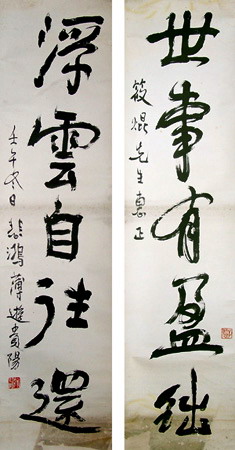 世事有盈絀
筱焜先生惠正
浮雲自往還
壬午冬日悲鴻薄遊貴陽